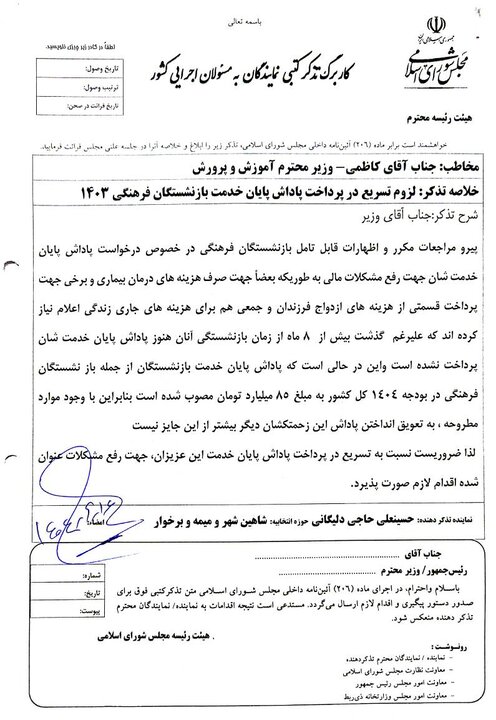 باسمه تعالی
جمهوری اسلامی ایران
مجلس شورای اسلامی
کاربرگ تذکر کتبی نمایندگان به مسئولان اجرایی کشور
لطفاً در کادر زیر چیزی ننویسید.
تاریخ وصول:
ترتیب وصول:
تاریخ قرائت در صحن:
هیئت رئیسه محترم
خواهشمند است برابر ماده (۲۰۶) آئین‌نامه داخلی مجلس شورای اسلامی، تذکر زیر را ابلاغ و خلاصه آنرا در جلسه علنی مجلس قرائت فرمایید.
مخاطب: جناب آقای کاظمی– وزیر محترم آموزش و پرورش
خلاصه تذکر: لزوم تسریع در پرداخت پاداش پایان خدمت بازنشستگان فرهنگی ۱۴۰۳
شرح تذکر:جناب آقای وزیر
پیرو مراجعات مکرر و اظهارات قابل تامل بازنشستگان فرهنگی در خصوص درخواست پاداش پایان
خدمت شان جهت رفع مشکلات مالی به طوریکه بعضاً جهت صرف هزینه های درمان بیماری و برخی جهت
پرداخت قسمتی از هزینه های ازدواج فرزندان و جمعی هم برای هزینه های جاری زندگی اعلام نیاز
کرده اند که علیرغم گذشت بیش از ۸ ماه از زمان بازنشستگی آنان هنوز پاداش پایان خدمت شان
پرداخت نشده است واین در حالی است که پاداش پایان خدمت بازنشستگان از جمله باز نشستگان
فرهنگی در بودجه ۱۴۰۴ کل کشور به مبلغ ۸۵ میلیارد تومان مصوب شده است بنابراین با وجود موارد
مطروحه ، به تعویق انداختن پاداش این زحمتکشان دیگر بیشتر از این جایز نیست
لذا ضروریست نسبت به تسریع در پرداخت پاداش پایان خدمت این عزیزان، جهت رفع مشکلات عنوان
شده اقدام لازم صورت پذیرد.
نماینده تذکر دهنده: حسینعلی حاجی دلیگانی حوزه انتخابیه: شاهین شهر و میمه و برخوار امضاء:
جناب آقای
رئیس‌جمهور/ وزیر محترم
باسلام واحترام، در اجرای ماده (۲۰۶) آئین‌نامه داخلی مجلس شورای اسلامی متن تذکرکتبی فوق برای
صدور دستور پیگیری و اقدام لازم ارسال می‌گردد. مستدعی است نتیجه اقدامات به نماینده/ نمایندگان محترم
تذکر دهنده منعکس شود.
هیئت رئیسه مجلس شورای اسلامی
شماره:
تاریخ:
پیوست:
رونوشت:
– نماینده / نمایندگان محترم تذکردهنده
– معاونت نظارت مجلس شورای اسلامی
– معاونت امور مجلس رئیس جمهور
– معاونت امور مجلس وزارتخانه ذی‌ربط